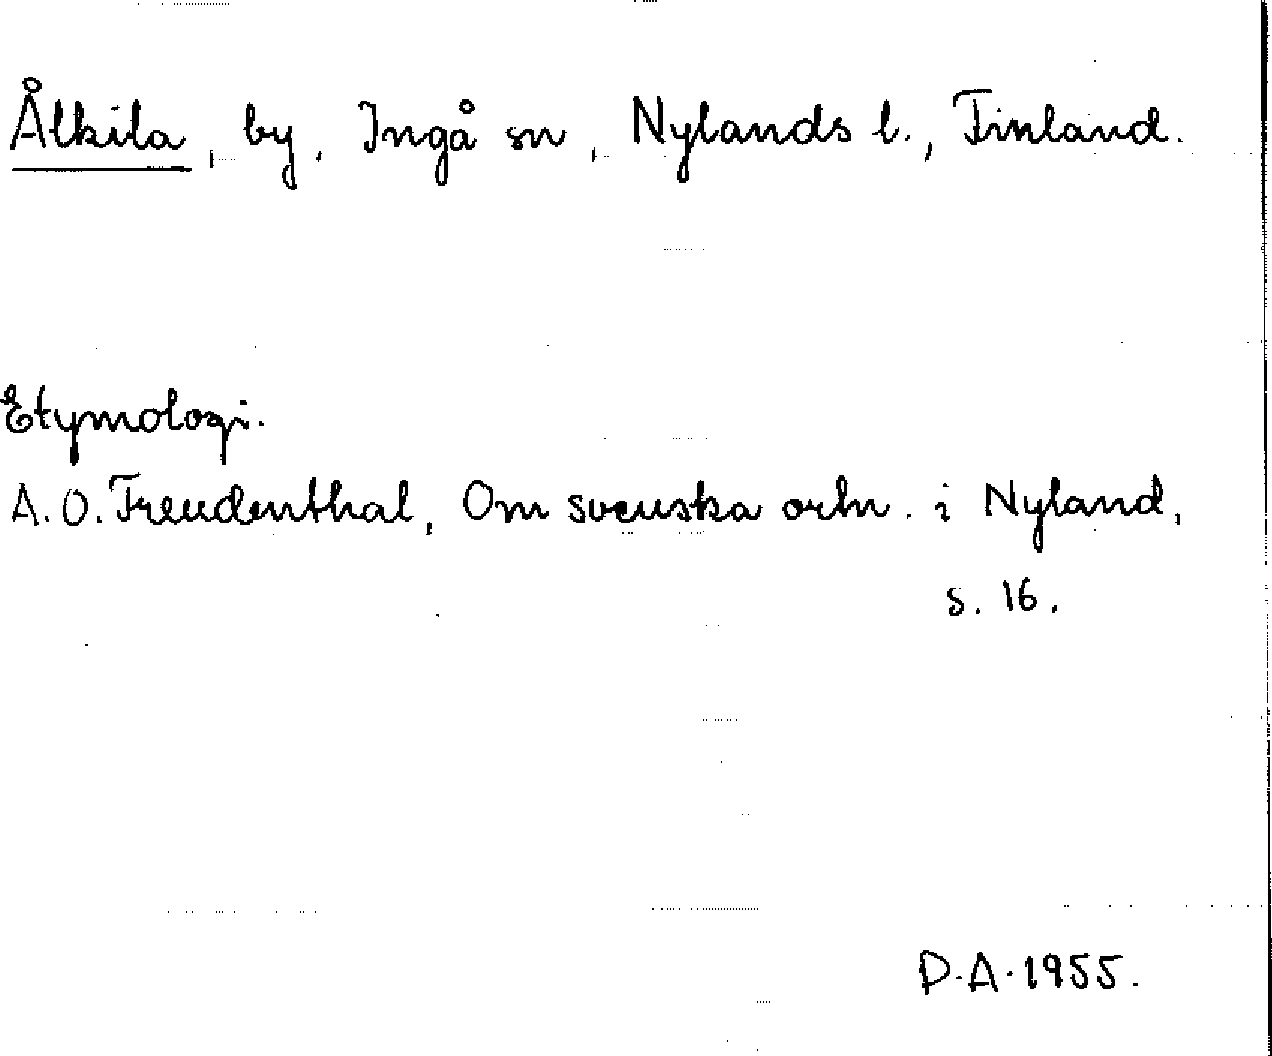 Ålkila, by, Ingå sn, Nylands l., Finland.
Etymologi.
A.O. Freudenthal, Om svenska ortn. i Nyland,
s. 16.
D.A. 1955.